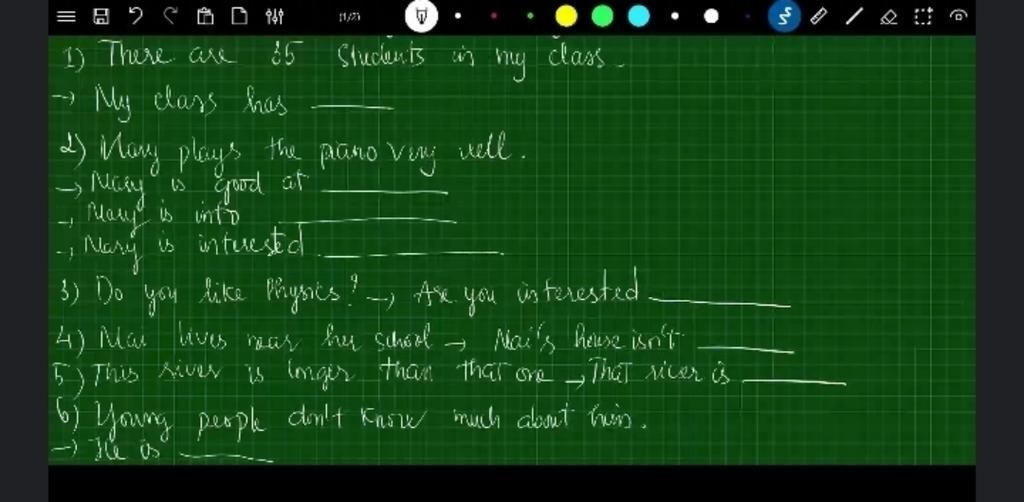 (1/2)
1) There are 35 students in my class.
→ My class has ______
2) Mary plays the piano very well.
→ Mary is good at ______
→ Mary is into ______
→ Mary is interested ______
3) Do you like Physics? → Are you interested ______
4) Mai lives near her school → Mai's house isn't ______
5) This river is longer than that one → That river is ______
6) Young people don't know much about him.
→ He is ______